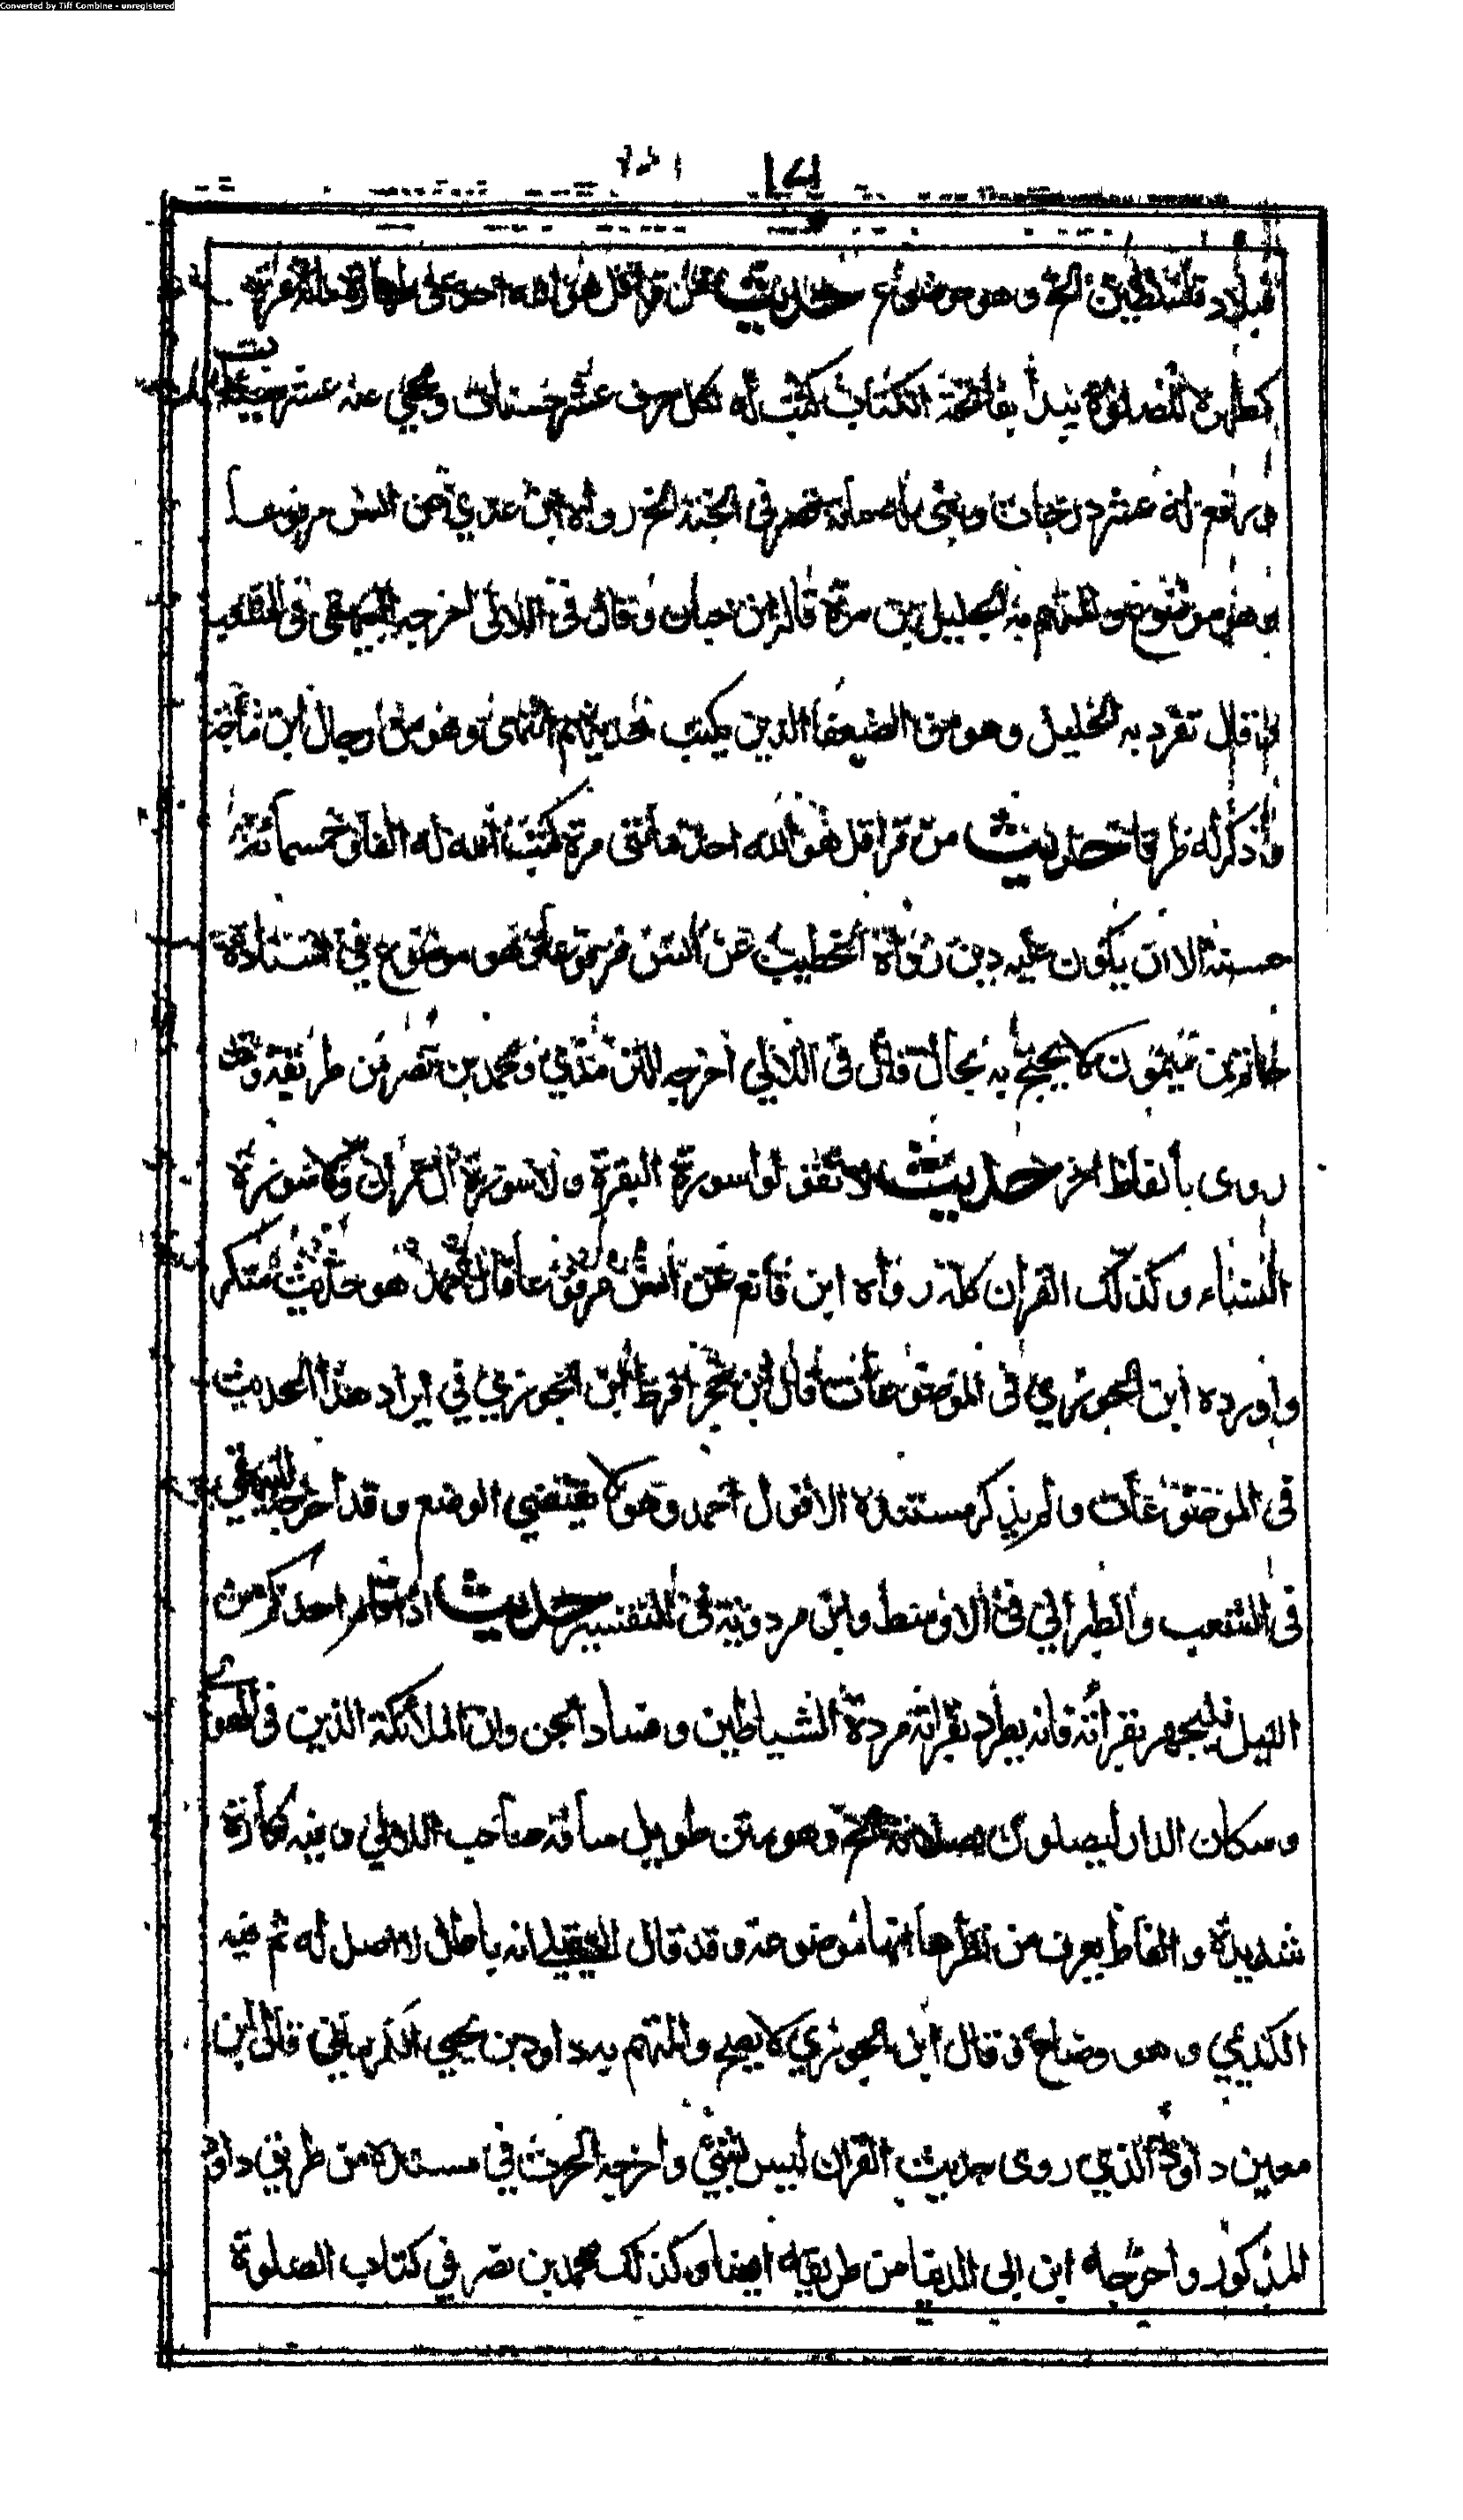 Converted by Tiff Combine - unregistered
الخ وهو موضوع حديث من قرا قل هو الله احد على طهارة مائة مرة
كطهرة للصلوة يبدأ بفاتحة الكتاب كتب له بكل حرف عشر حسنات ومحي عنه عشر سيئات
ورفع له عشر درجات وبنى له مائة قصر في الجنة الخ رواه ابن عدي عن انس مرفوعا
وهو موضوع والمتهم به الخليل بن مرة قاله ابن حبان وقال في اللالي اخرجه البيهقي في الشعب
قال تفرد به الخليل وهو من الضعفا الذين يكتب حديثهم انتهى وهو من رجال ابن ماجة
وذكر له طرقا حديث من قرا قل هو الله احد مائتى مرة كتب الله له الفا وخمسمائة
حسنة الا ان يكون عليه دين رواه الخطيب عن انس مرفوعا وهو موضوع في اسناده
حاتم بن ميمون لا يحتج به بحال قال في اللالي اخرجه الترمذي ومحمد بن نصر من طريقه وقد
روى بألفاظ اخر حديث لا تقولوا سورة البقرة ولا سورة ال عمران ولا سورة
النساء وكذلك القران كله رواه ابن قانع عن انس مرفوعا قال احمد هو حديث منكر
واورده ابن الجوزي في الموضوعات قال ابن حجر افرط ابن الجوزي في ايراد هذا الحديث
في الموضوعات ولم يذكر مستنده الا قول احمد وهو لا يقتضي الوضع وقد اخرجه البيهقي
في الشعب والطبراني في الاوسط وابن مردوية في التفسير حديث اذا قام احدكم من
الليل فليجهر بقرائته فانه يطرد بقراته مردة الشياطين وفساد الجن وان الملائكة الذين في الهوا
وسكان الدار ليصلون بصلاته الخ وهو متن طويل ساقه صاحب اللالي وفيه نكارة
شديدة والفاظ يعرف من نظرها انها موضوعة وقد قال العقيلي انه باطل لا اصل له ثم فيه
الكديمي وهو وضاع وقال ابن الجوزي لا يصح والمتهم به داود بن يحيى الكرماني قال ابن
معين داود الذي روى حديث القران ليس بشئ واخرجه الحرث في مسنده من طريق داود
المذكور واخرجه ابن ابى الدنيا من طريقه ايضا وكذلك محمد بن نصر في كتاب الصلوة